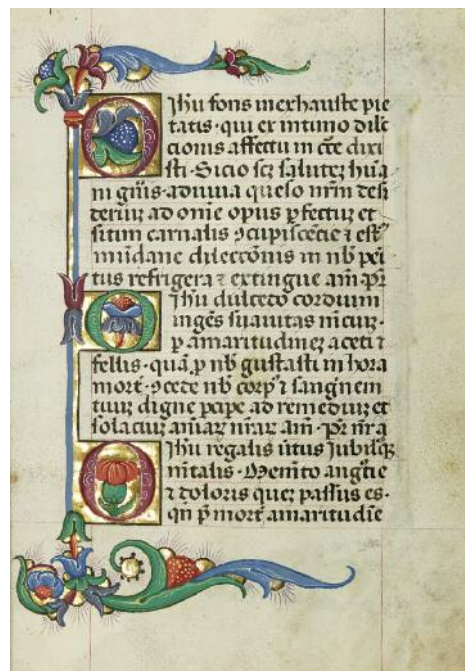 O Jhu fons inexhauste pie
tatis · qui ex intimo dile
ctionis affectu in cce dixi
sti · Sicio scz salutez hūa
ni gn̄is · adiuua queso nrm̄ desi
deriuz ad onīe opus ꝑfectuz et
sitim carnalis ꝯcupiscēcie ⁊
mūdane dilecc̄onis in nb̄
tus refrigera ⁊ extingue am̄ · pr̄
O Jhu dulcedo cordium
ingēs suauitas m̄ciuz ·
ꝑ amaritudinez aceti ⁊
fellis · quā ꝓ nb̄ gustasti in hora
mort̄ · ꝯcede nb̄ corpꝰ ⁊ sanguinem
tuuz digne ꝑcipe ad remediuz et
solaciuz aīaꝝ nr̄aꝝ am̄ · pr̄ nr̄a
O Jhu regalis ūtus Jubilusqꝫ
m̄talis · Mem̄to angstie
⁊ doloris quez passus es ·
qn̄ p̄ mort̄ amaritudīe